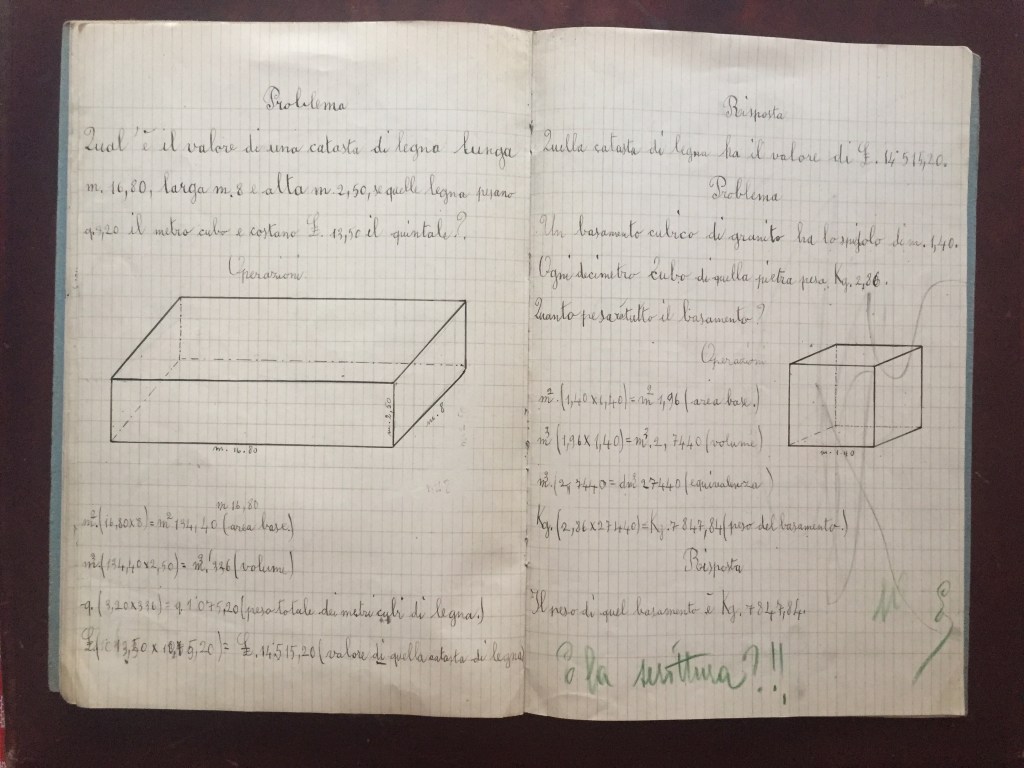 Problema
Qual'è il valore di una catasta di legna lunga
m. 16,80, larga m. 8 e alta m. 2,50, se quelle legna pesano
q. 3,20 il metro cubo e costano £. 13,50 il quintale?
Operazioni
m. 2,50
m. 8
m. 16.80
m 16,80
m². (16,80x8) = m² 134,40 (area base.)
m³. (134,40x2,50) = m³. 336 (volume)
q. (3,20x336) = q 1.075,20 (peso totale dei metri cubi di legna.)
£ 13,50 x 1075,20) = £. 14.515,20 (valore di quella catasta di legna
Risposta
Quella catasta di legna ha il valore di £. 14.515,20.
Problema
Un basamento cubico di granito ha lo spigolo di m. 1,40.
Ogni decimetro cubo di quella pietra pesa Kg. 2,86.
Quanto pesarà tutto il basamento?
Operazioni
m². (1,40x1,40) = m² 1,96 (area base.)
m³ (1,96x1,40) = m³. 2,7440 (volume)
m³. (2,7440 = dm³ 27440 (equivalenza)
Kg. (2,86x27440) = Kg. 7847,84 (peso del basamento.)
m. 1.40
Risposta
Il peso di quel basamento è Kg. 7847,84.
E la scrittura?!!